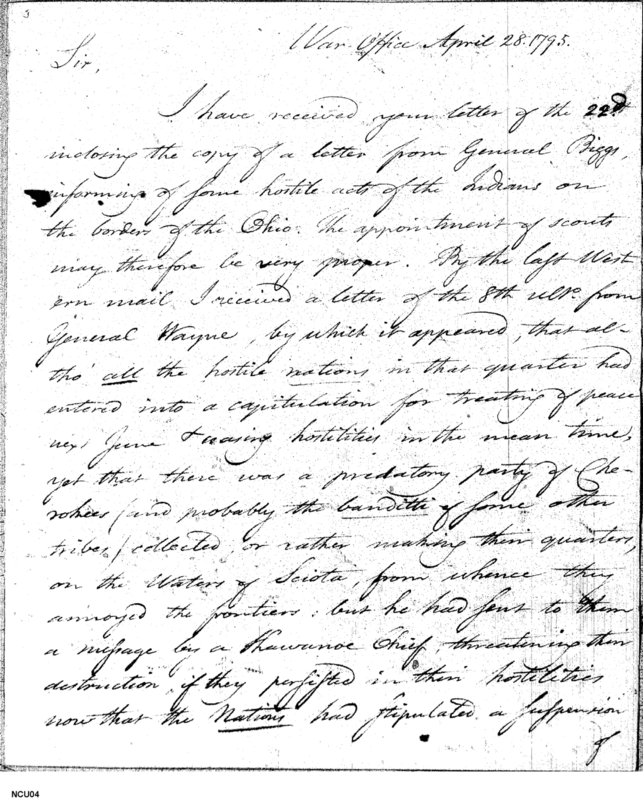 War Office April 28. 1795.
Sir,
I have received your letter of the 22d
inclosing the copy of a letter from General Biggs,
informing of some hostile acts of the Indians on
the borders of the Ohio. The appointment of scouts
may therefore be very proper. By the last West
ern mail I received a letter of the 8th ulto. from
General Wayne, by which it appeared, that al-
tho' all the hostile nations in that quarter had
entered into a capitulation for treating of peace
next June & ceasing hostilities in the mean time,
yet that there was a predatory party of Che-
rokees (and probably the banditti of some other
tribes) collected, or rather making their quarters,
on the Waters of Sciota, from whence they
annoyed the frontiers: but he had sent to them
a message by a Shawanoe Chief, threatening their
destruction, if they persisted in their hostilities
now that the Nations had stipulated a suspension
of
NCU04